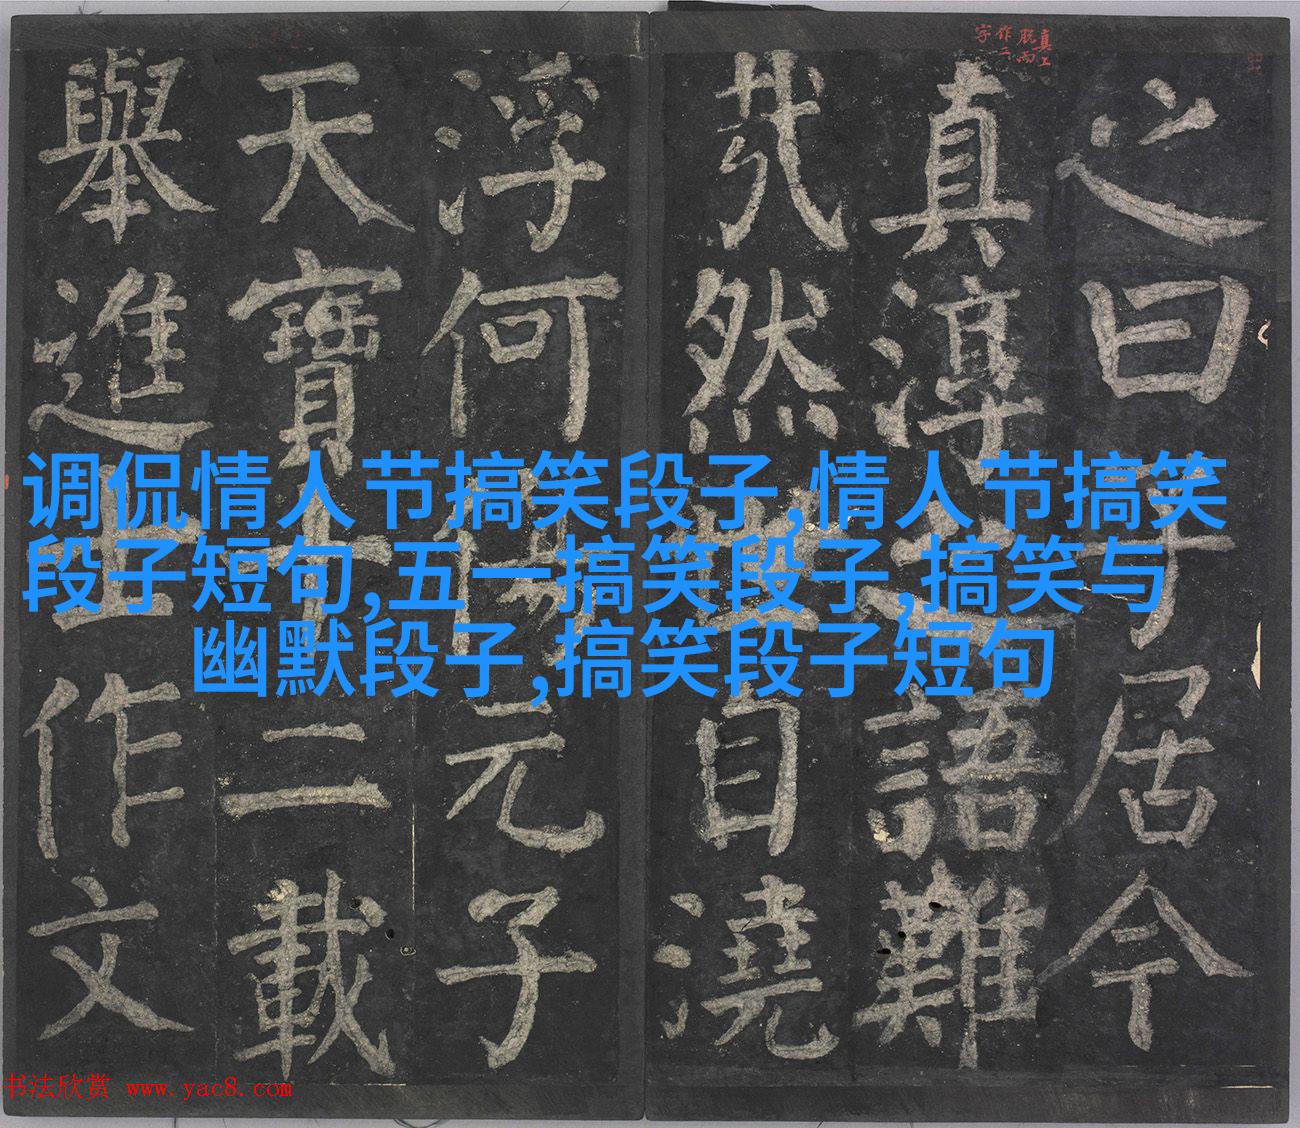 真上
脫而
作二
字
之曰子居今
真淳之語難
㢤然世自澆
浮何傷元子
天寶十二載
舉進士作文
调侃情人节搞笑段子,情人节搞笑
段子短句,五一搞笑段子,搞笑与
幽默段子,搞笑段子短句
书法欣赏 www.yac8.com